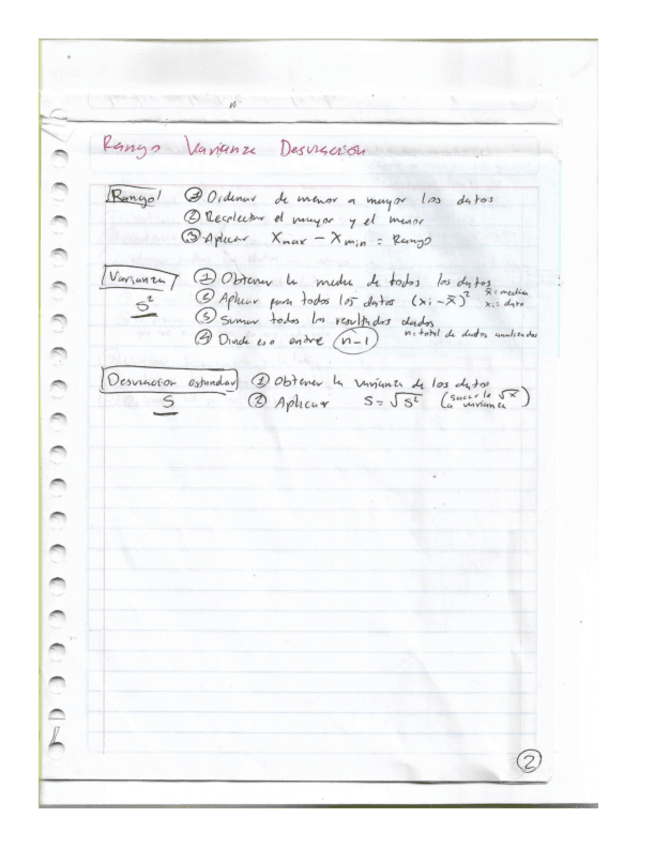 Rango Varianza Desviación
Rango! ① Ordenar de menor a mayor los datos
② Recolectar el mayor y el menor
③ Aplicar Xmax - Xmin = Rango
Varianza ① Obtener la media de todos los datos
S² ② Aplicar para todos los datos (xi - x̄)² x̄ = media xi = dato
③ Sumar todos los resultados dados
④ Divide eso entre (n-1) n = total de datos analizados
Desviacion estandar ① Obtener la varianza de los datos
S ② Aplicar S = √S² (sacar la √x a varianza)
2